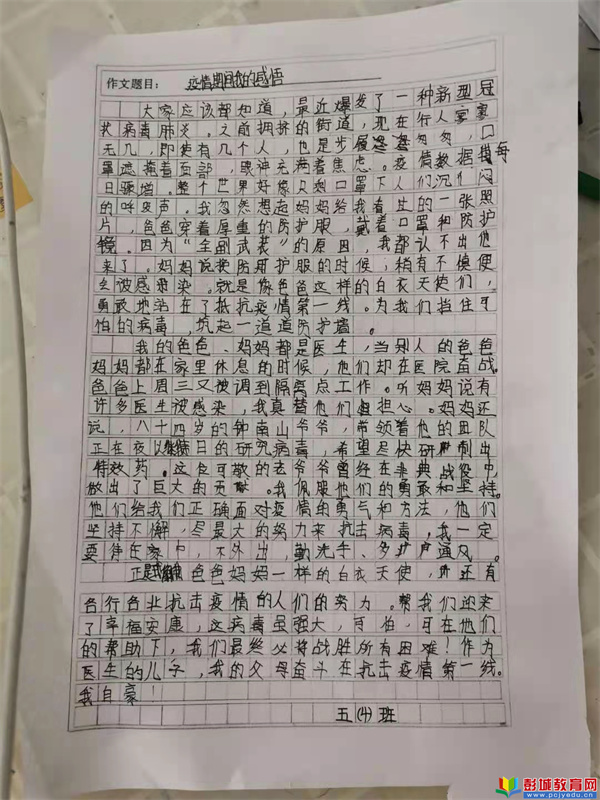 作文题目：疫情期间我的感悟
大家应该都知道，最近爆发了一种新型冠
状病毒肺炎。之前拥挤的街道，现在行人寥寥
无几，即使有几个人，也是步履匆匆，口
罩遮掩着面部，眼神充满着焦虑。疫情数据每
日骤增。整个世界好像只剩口罩下人们沉闷
的呼吸声。我忽然想起妈妈给我看过的一张照
片，爸爸穿着厚重的防护服，戴着口罩和防护
镜。因为“全副武装”的原因，我都认不出他
来了。妈妈说换防护服的时候，稍有不慎便
会被感染。就是像爸爸这样的白衣天使们，
勇敢地站在了抵抗疫情第一线。为我们挡住可
怕的病毒，筑起一道道防护墙。
我的爸爸、妈妈都是医生，当别人的爸爸
妈妈都在家里休息的时候，他们却在医院奋战。
爸爸上周三又被调到隔离点工作。听妈妈说有
许多医生被感染，我真替他们担心。妈妈还
说，八十四岁的钟南山爷爷，带领着他的团队
正在夜以继日的研究病毒，希望尽快研制出
特效药。这位可敬的老爷爷曾经在非典战役中
做出了巨大的贡献。我佩服他们的勇敢和坚持。
他们给我们正确面对疫情的勇气和方法，他们
坚持不懈，尽最大的努力来抗击病毒，我一定
要待在家中，不外出，勤洗手、多开户通风。
正是爸爸妈妈一样的白衣天使，还有
各行各业抗击疫情的人们的努力。帮我们迎来
了幸福安康，这病毒虽强大，可怕，可在他们
的帮助下，我们最终必将战胜所有困难！作为
医生的儿子，我的父母奋斗在抗击疫情第一线。
我自豪！
五（4）班
彭城教育网
www.pcjyedu.cn